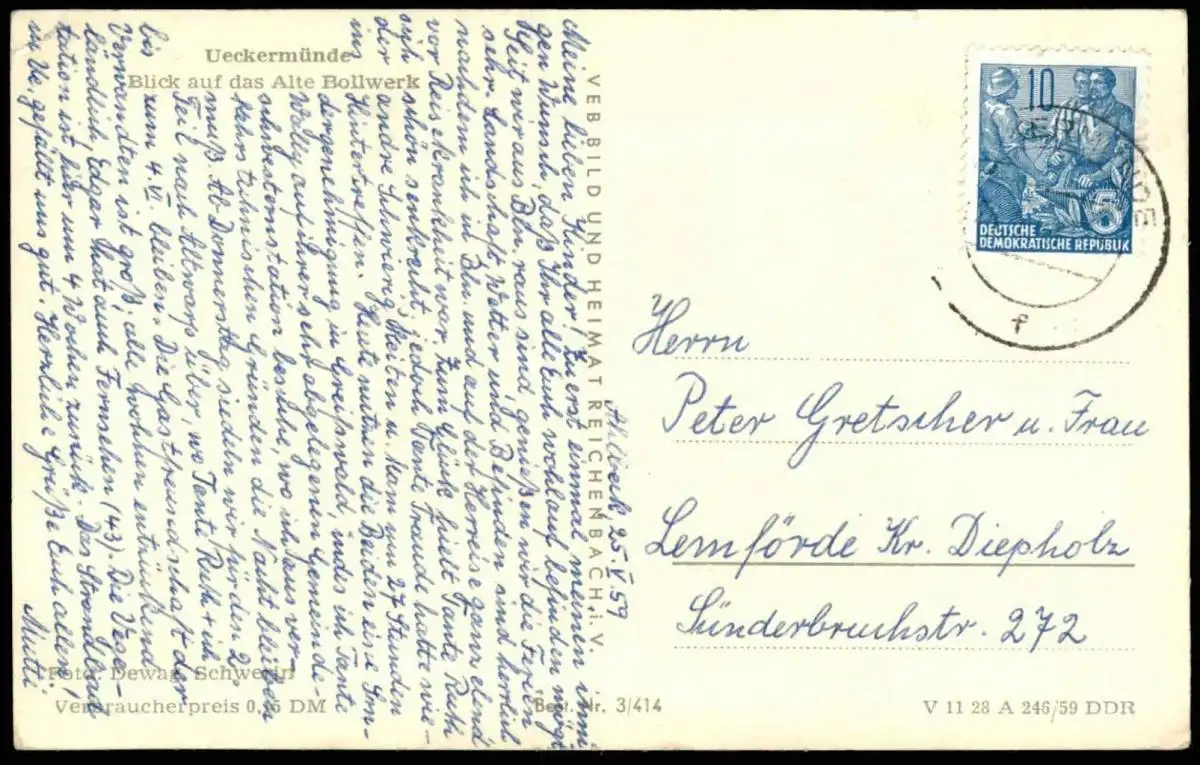 Ueckermünde
Blick auf das Alte Bollwerk
Ahlbeck, 25.V.59
Meine lieben Kinder! Zu erst einmal meinen inni-
gen Wunsch, daß Ihr alle Euch wohlauf befinden mögt.
Seit wir aus Bln. raus sind, genießen wir die Ferien
sehr. Landschaft, Wetter und Befinden sind herrlich
nachdem ich in Bln. und auf der Herreise ganz elend
vor Reisekrankheit war. Zum Glück hielt Tante Ruth
sich schön senkrecht, jedoch Tante Traude hatte wie-
der andre Schwierigkeiten u. kam um 27 Stunden
ins Hintertreffen. Heute nutzen die Beiden ihre Son-
dergenehmigung in Greifswald, indes ich Tante
Wally auf ihrer sehr abgelegenen Gemeinde-
schwesternstation besuche, wo ich aus ver-
kehrstechnischen Gründen die Nacht bleiben
muß. Ab Donnerstag siedeln wir für den 2.
Teil nach Altwarp über, wo Tante Ruth + ich
bis zum 4.VI. bleiben. Die Gastfreundschaft der
Verwandten ist groß, alle wohnen entzückend
ländlich, Edgar hat auch Fernsehen (43). Die Vege-
tation ist hier um 4 Wochen zurück. Das Strandbad
in Ue. gefällt uns gut. Herrliche Grüße Euch allen,
Muti
VEB BILD UND HEIMAT REICHENBACH i. V.
10
5
DEUTSCHE
DEMOKRATISCHE REPUBLIK
f
Herrn
Peter Gretscher u. Frau
Lemförde Kr. Diepholz
Sünderbruchstr. 272
Foto: Dewag, Schwerin
Verbraucherpreis 0,15 DM
Best. Nr. 3/414
V 11 28 A 246/59 DDR